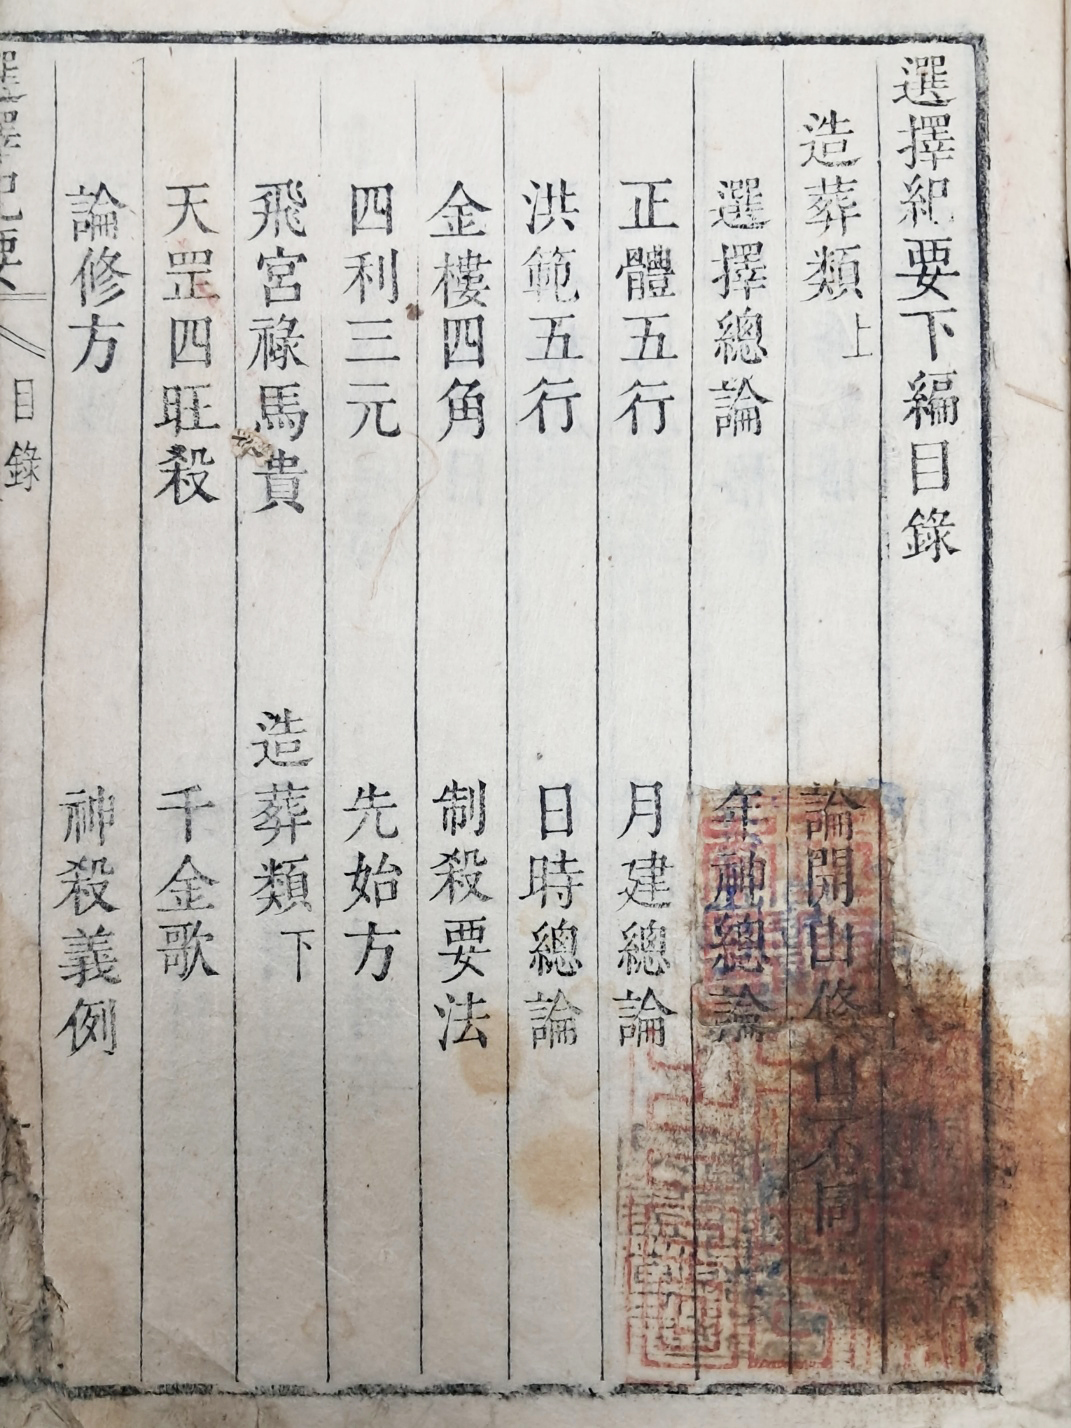 選擇紀要下編目錄
造葬類上　論開山修山不同
選擇總論　年神總論
正體五行　月建總論
洪範五行　日時總論
金樓四角　制殺要法
四利三元　先始方
飛宮祿馬貴　造葬類下
天罡四旺殺　千金歌
論修方　神殺義例
選擇紀要　目錄